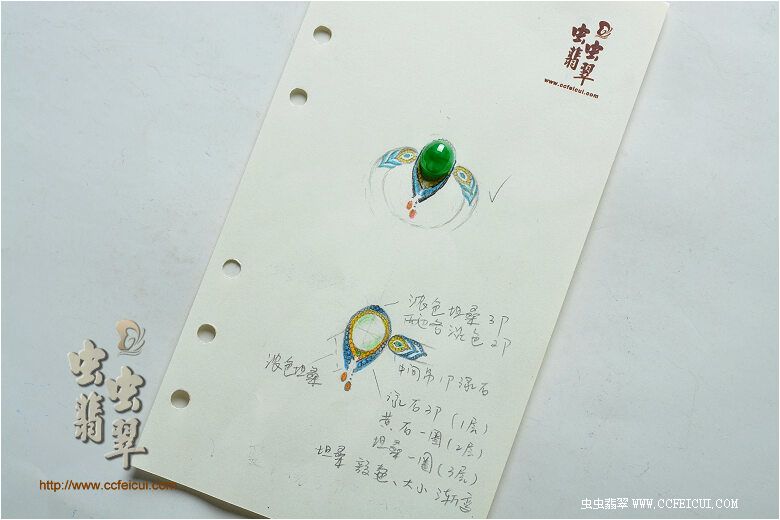 虫虫翡翠
www.ccfeicui.com
浓色坦桑 3P
浓色坦桑
中间吊1P绿石
绿石2P (1层)
黄石一圈 (2层)
坦桑一圈 (3层)
坦桑 颜色、大小渐变
虫虫翡翠
http://www.ccfeicui.com
虫虫翡翠 WWW.CCFEICUI.COM